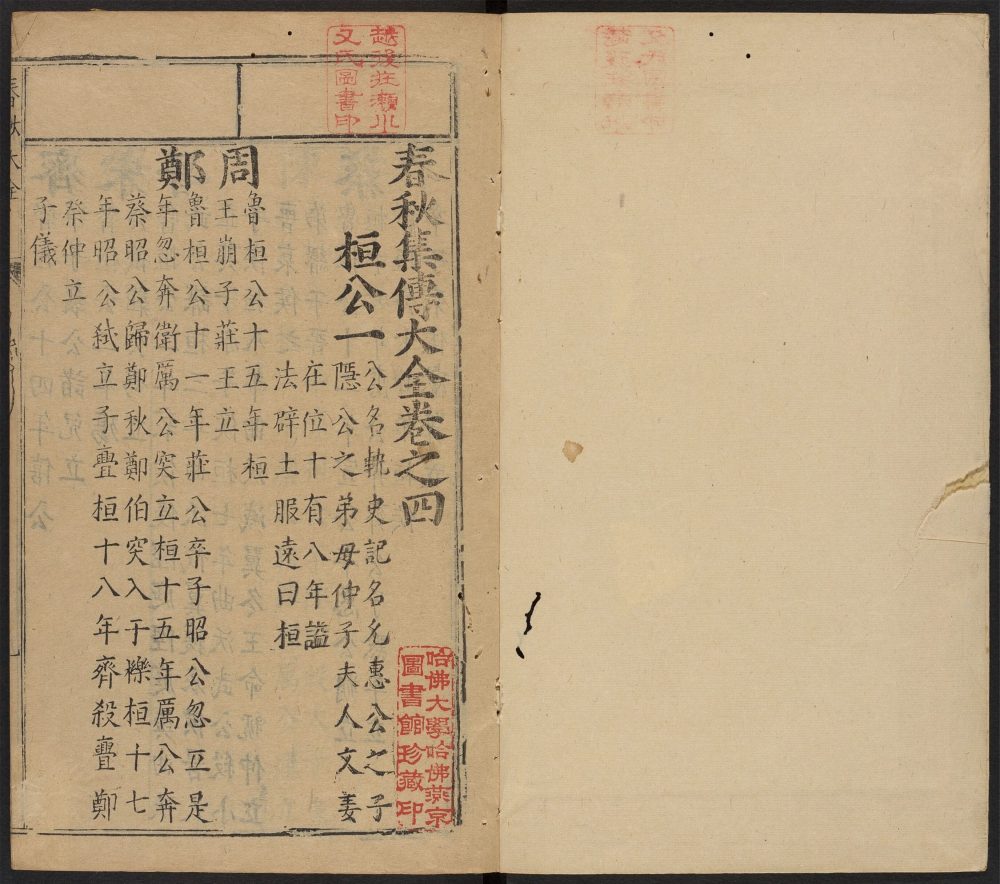 春秋集傳大全卷之四
桓公一
公名軌史記名允惠公之子
隱公之弟母仲子夫人文姜
在位十有八年謚
法辟土服遠曰桓
周
魯桓公十五年桓
王崩子莊王立
鄭
魯桓公十一年莊公卒子昭公忽立是
年忽奔衛厲公突立桓十五年厲公奔
蔡昭公歸鄭秋鄭伯突入于櫟桓十七
年昭公弒立子亹桓十八年齊殺亹鄭
祭仲立
子儀
春秋大全
越後荘瀬小
又氏圖書印
哈佛大學哈佛燕京
圖書館珍藏印